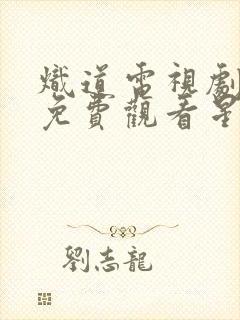 熾道電視劇
免費觀看星
劉志龍